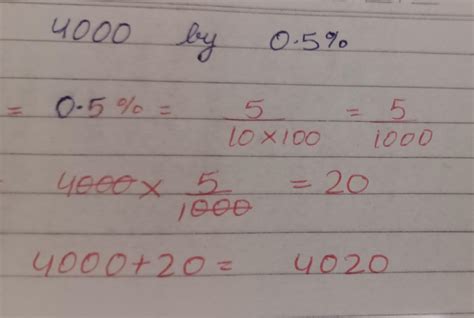 4000 by 0.5%
= 0.5% = 5/10×100 = 5/1000
4000 × 5/1000 = 20
4000+20 = 4020